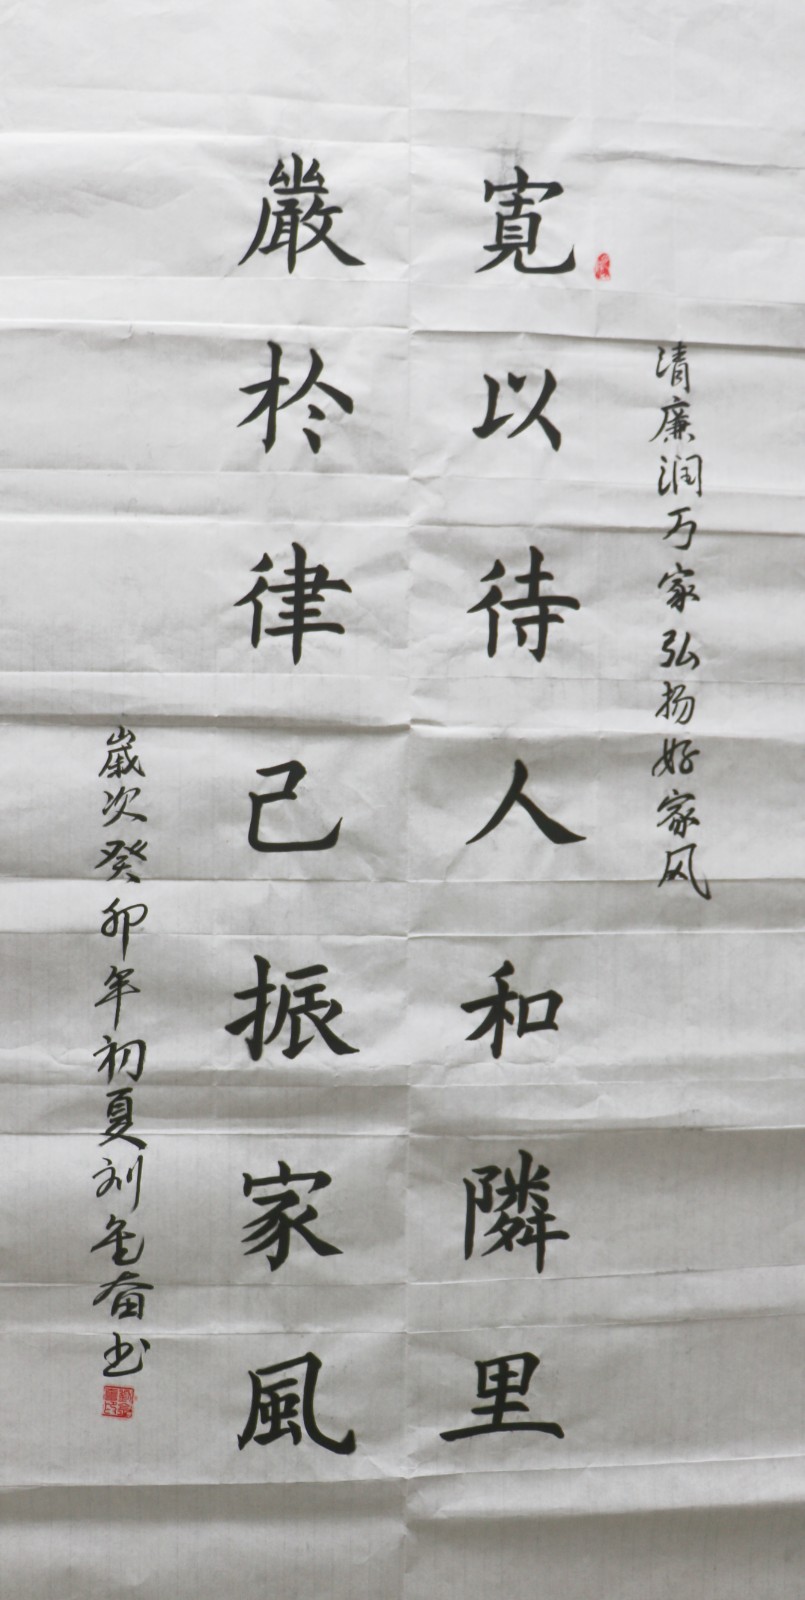 清廉润万家弘扬好家风
寬以待人和隣里
嚴於律己振家風
歲次癸卯年初夏刘金奋书